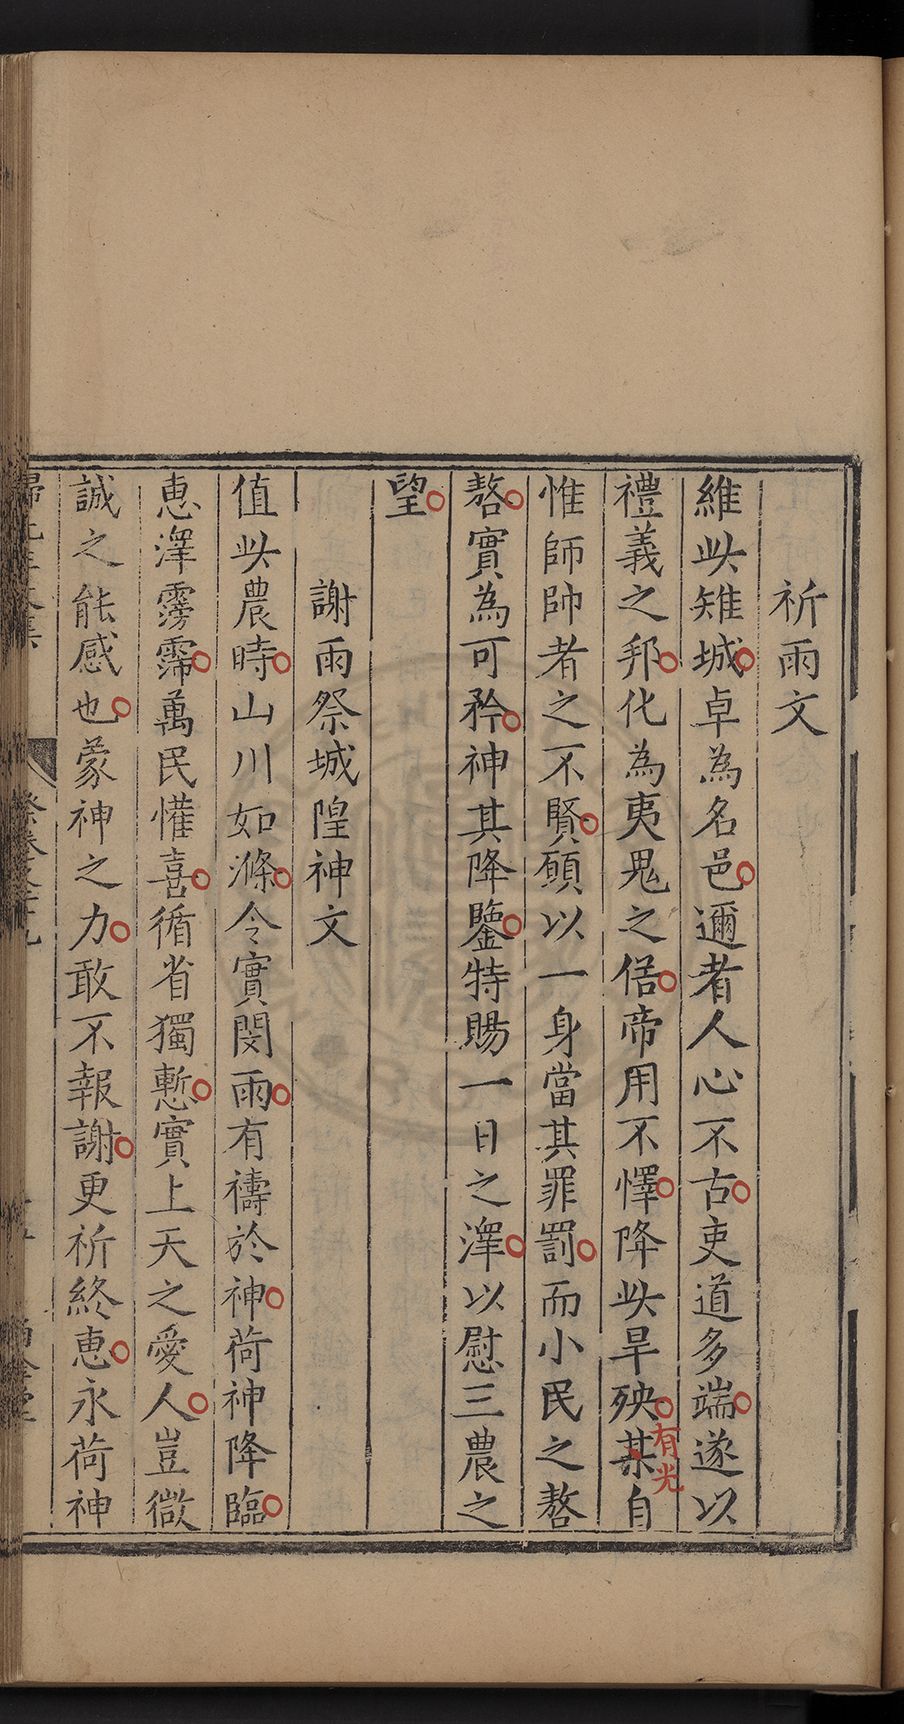 祈雨文
維此雉城卓為名邑邇者人心不古吏道多端遂以
禮義之邦化為夷鬼之俗帝用不懌降此旱殃某自
有光
惟師帥者之不賢願以一身當其罪罰而小民之嗸
嗸實為可矜神其降鑒特賜一日之澤以慰三農之
望
謝雨祭城隍神文
值此農時山川如滌令實閔雨有禱於神荷神降臨
惠澤霶霈萬民懽喜循省獨慙實上天之愛人豈微
誠之能感也蒙神之力敢不報謝更祈終惠永荷神